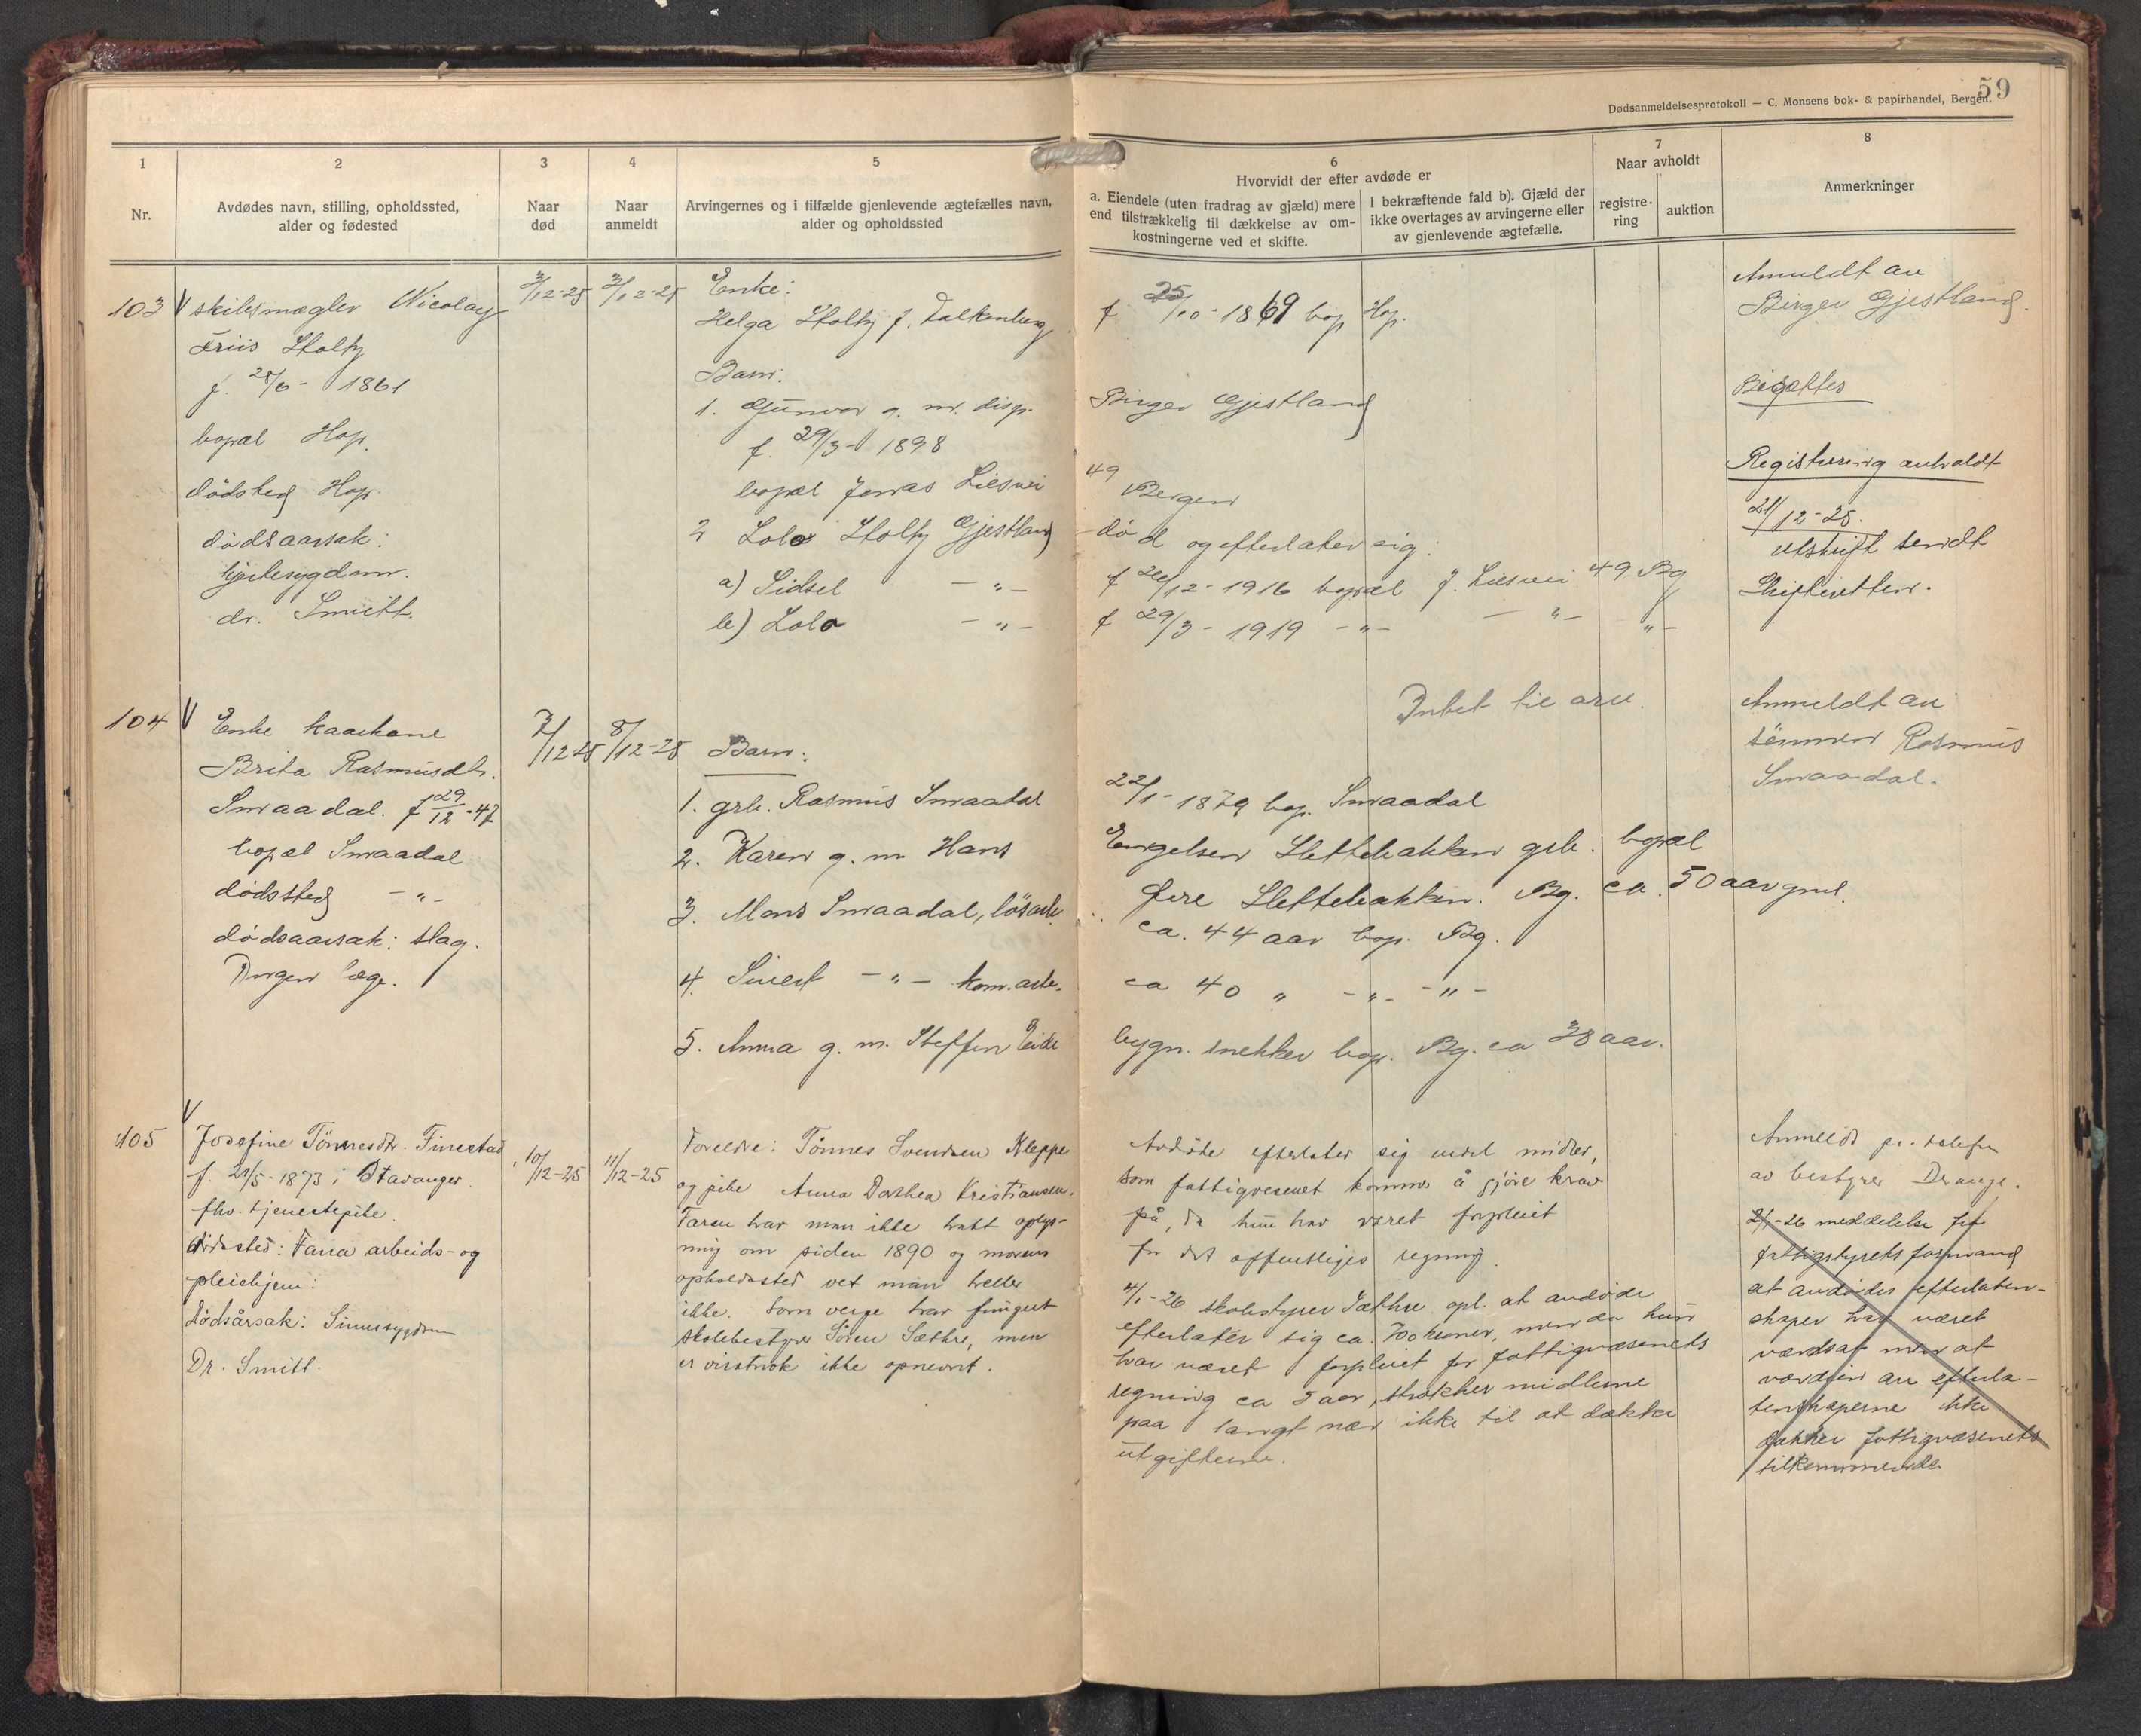 59
Dødsanmeldelsesprotokoll — C. Monsens bok- & papirhandel, Bergen.
1
2
3
4
5
6
7
8
Nr.
Avdødes navn, stilling, opholdssted,
alder og fødested
Naar
død
Naar
anmeldt
Arvingernes og i tilfælde gjenlevende ægtefælles navn,
alder og opholdssted
Hvorvidt der efter avdøde er
a. Eiendele (uten fradrag av gjæld) mere
end tilstrækkelig til dækkelse av om-
kostningerne ved et skifte.
I bekræftende fald b). Gjæld der
ikke overtages av arvingerne eller
av gjenlevende ægtefælle.
Naar avholdt
registre-
ring
auktion
Anmerkninger
103 V skibsmægler Nicolay
Friis Stoltz
f. 28/6 - 1861
bopæl Hop.
dödsted Hop.
dødsaarsak:
hjertesygdom.
dr. Smitt.
3/12-25
3/12-25
Enke:
Helga Stoltz f. Falkenberg
f 25/10-1869 bop Hop.
Barn:
1. Gunvor g. m. disp. Birger Gjestland
f. 29/3- 1898
bopæl Jonas Liesvei 49 Bergen
2 Lola Stoltz Gjestland død og efterlater sig:
a) Sidsel -"- f 26/12-1916 bopæl J. Liesvei 49 Bg
b) Lola -"- f 29/3-1919 -"- -"- "-
Anmeldt av
Birger Gjestland.
Bisættes
Registrering avholdt
21/12-25.
Utskrift sendt
Skifteretten.
104 V Enke kaarkone
Brita Rasmusdtr.
Smaadal. f 29/12-47
bopæl Smaadal
dødssted -"-
dødsaarsak: slag.
Ingen læge.
7/12-25
8/12-25
Barn:
1. grb. Rasmus Smaadal 22/1-1879 bop. Smaadal
2. Karen g. m Hans Engelsen Slettebakken grb. bopæl
Øvre Slettebakken. Bg. ca. 50 aar gml.
3. Mons Smaadal, lösarb. ca. 44 aar bop. Bg.
4. Sivert -"- kom. arb. ca 40 " -"- -"-
5. Anna g. m. Steffen Eide bygn. snekker bop. Bg. ca 38 aar.
Intet til arv.
Anmeldt av
sönnen Rasmus
Smaadal.
105 V
Josefine Tönnesdtr. Finestad
f. 21/5-1873 i Stavanger.
fhv. tjenestepike.
dødssted: Fana arbeids- og
pleiehjem:
Dødsårsak: Sinnssygdom
Dr. Smitt.
10/12-25
11/12-25
Foreldre: Tönnes Svendsen Kleppe
og pike Anna Dorthea Kristiansen.
Faren har man ikke hatt oplys-
ning om siden 1890 og morens
opholdssted vet man heller
ikke. Som verge har fungert
skolebestyrer Sören Sæthre, men
er visstnok ikke opnevnt.
Avdöde efterlater sig endel midler,
som fattigvesenet kommer å gjöre krav
på, da hun har været forpleiet
for det offentliges regning.
4/1-26 skolestyrer Sæthre opl. at avdøde
efterlater sig ca. 700 kroner, men da hun
har været forpleiet for fattigvæsenets
regning ca 5 aar, strækker midlerne
paa langt nær ikke til at dække
utgifterne.
Anmeldt pr. telefon
av bestyrer
2/1-26 meddelelse fra
fattigstyrets formand
at avdødes efterlaten-
skaper har været
værdsat men at
værdien av efterla-
tenskaperne ikke
dækker fattigvæsenets
tilkommende